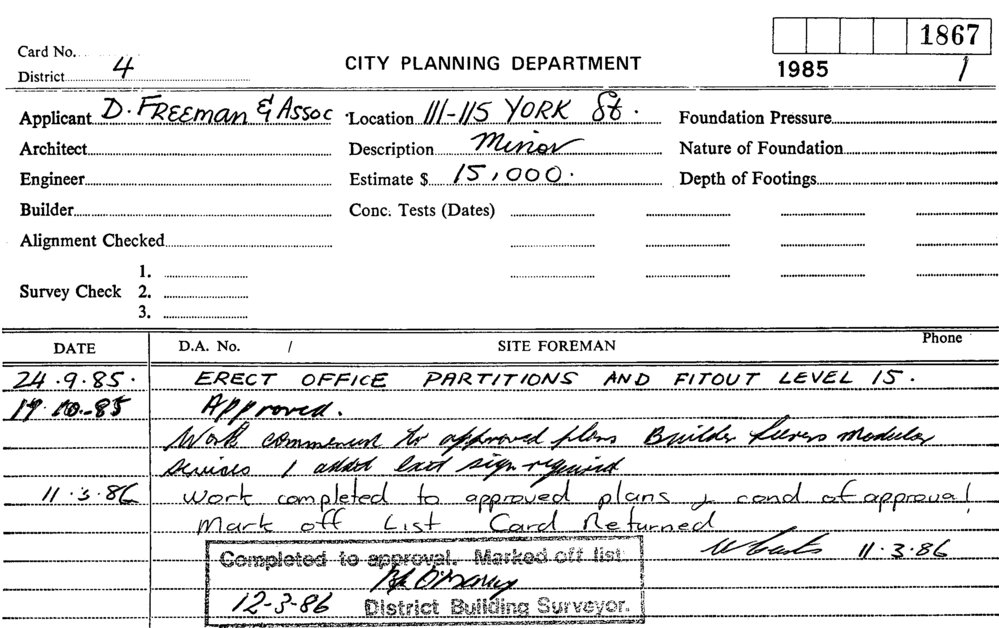 Card No. 1867
District 4 CITY PLANNING DEPARTMENT 1985 1
Applicant D. FREEMAN & ASSOC Location 111-115 YORK St. Foundation Pressure
Architect Description Minor Nature of Foundation
Engineer Estimate $ 15,000. Depth of Footings
Builder Conc. Tests (Dates)
Alignment Checked
1.
Survey Check 2.
3.
DATE D.A. No. / SITE FOREMAN Phone
24.9.85. ERECT OFFICE PARTITIONS AND FITOUT LEVEL 15.
17.10.85 Approved.
Work commenced to approved plans Builder Modular
Services 1 added exit sign required
11.3.86 Work completed to approved plans & cond of approval
Mark off List Card Returned
11.3.86
Completed to approval. Marked off list
12-3-86 District Building Surveyor.